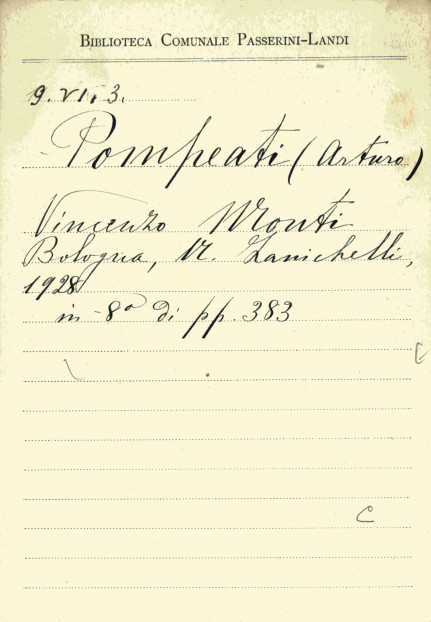 BIBLIOTECA COMUNALE PASSERINI-LANDI
9. VI. 3.
Pompeati (Arturo)
Vincenzo Monti
Bologna, N. Zanichelli,
1928
in-8° di pp. 383
C